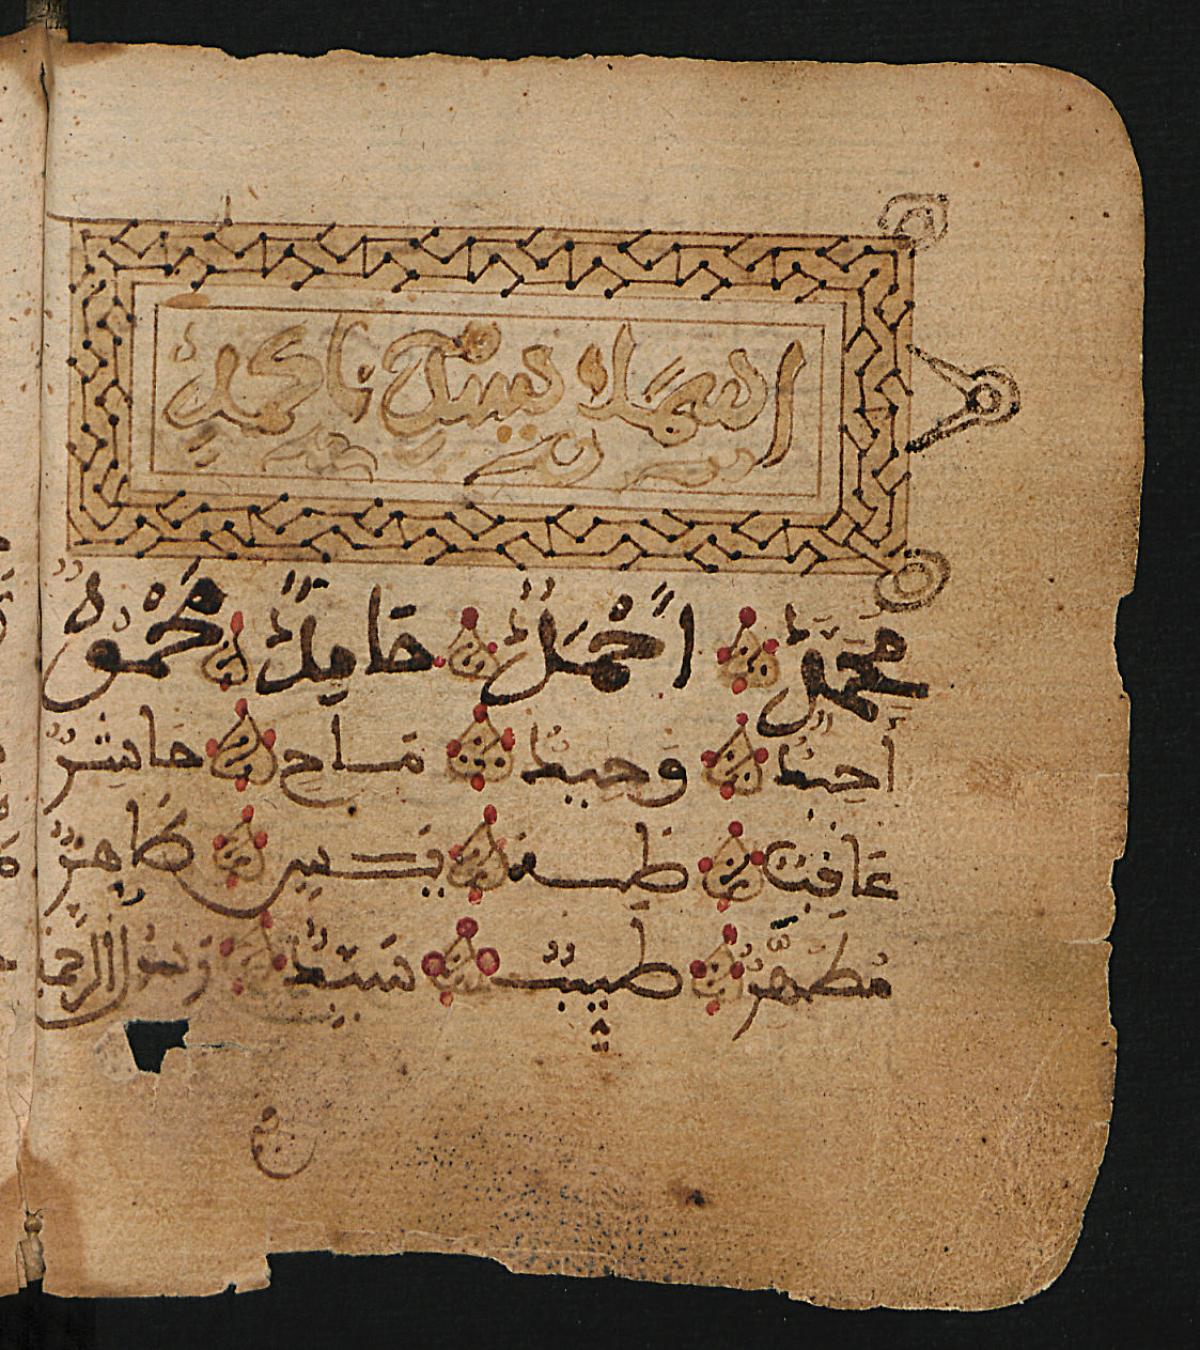 محمد
محمد احمد حامد محمود
احيد وحيد ماح حاشر
عاقب طه يس طاهر
مطهر طيب سيد رسول الرحمة